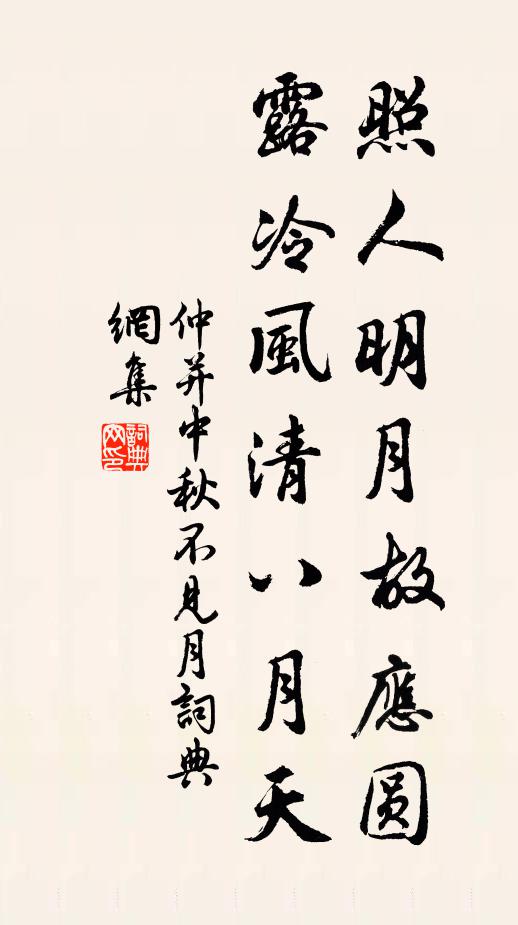 照人明月故應圆
露冷風清八月天
仲并中秋不見月詞典
網集
詞典
网印